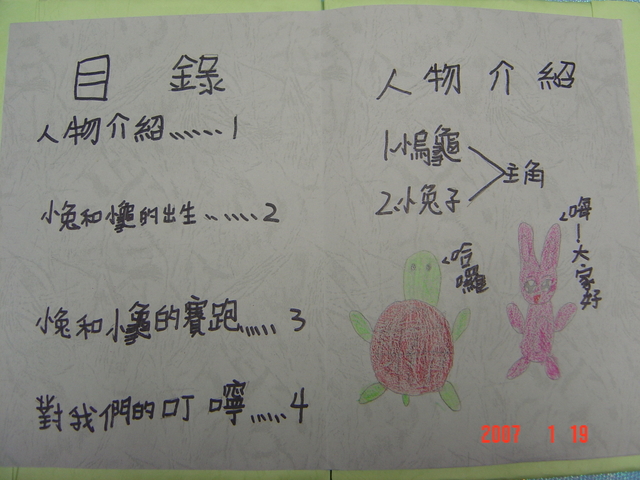 目 錄
人物介紹......1
小兔和小龜的出生......2
小兔和小龜的賽跑.....3
對我們的叮嚀.....4
人物介紹
1.小烏龜
2.小兔子
主角
哈囉
嗨！大家好
2007 1 19